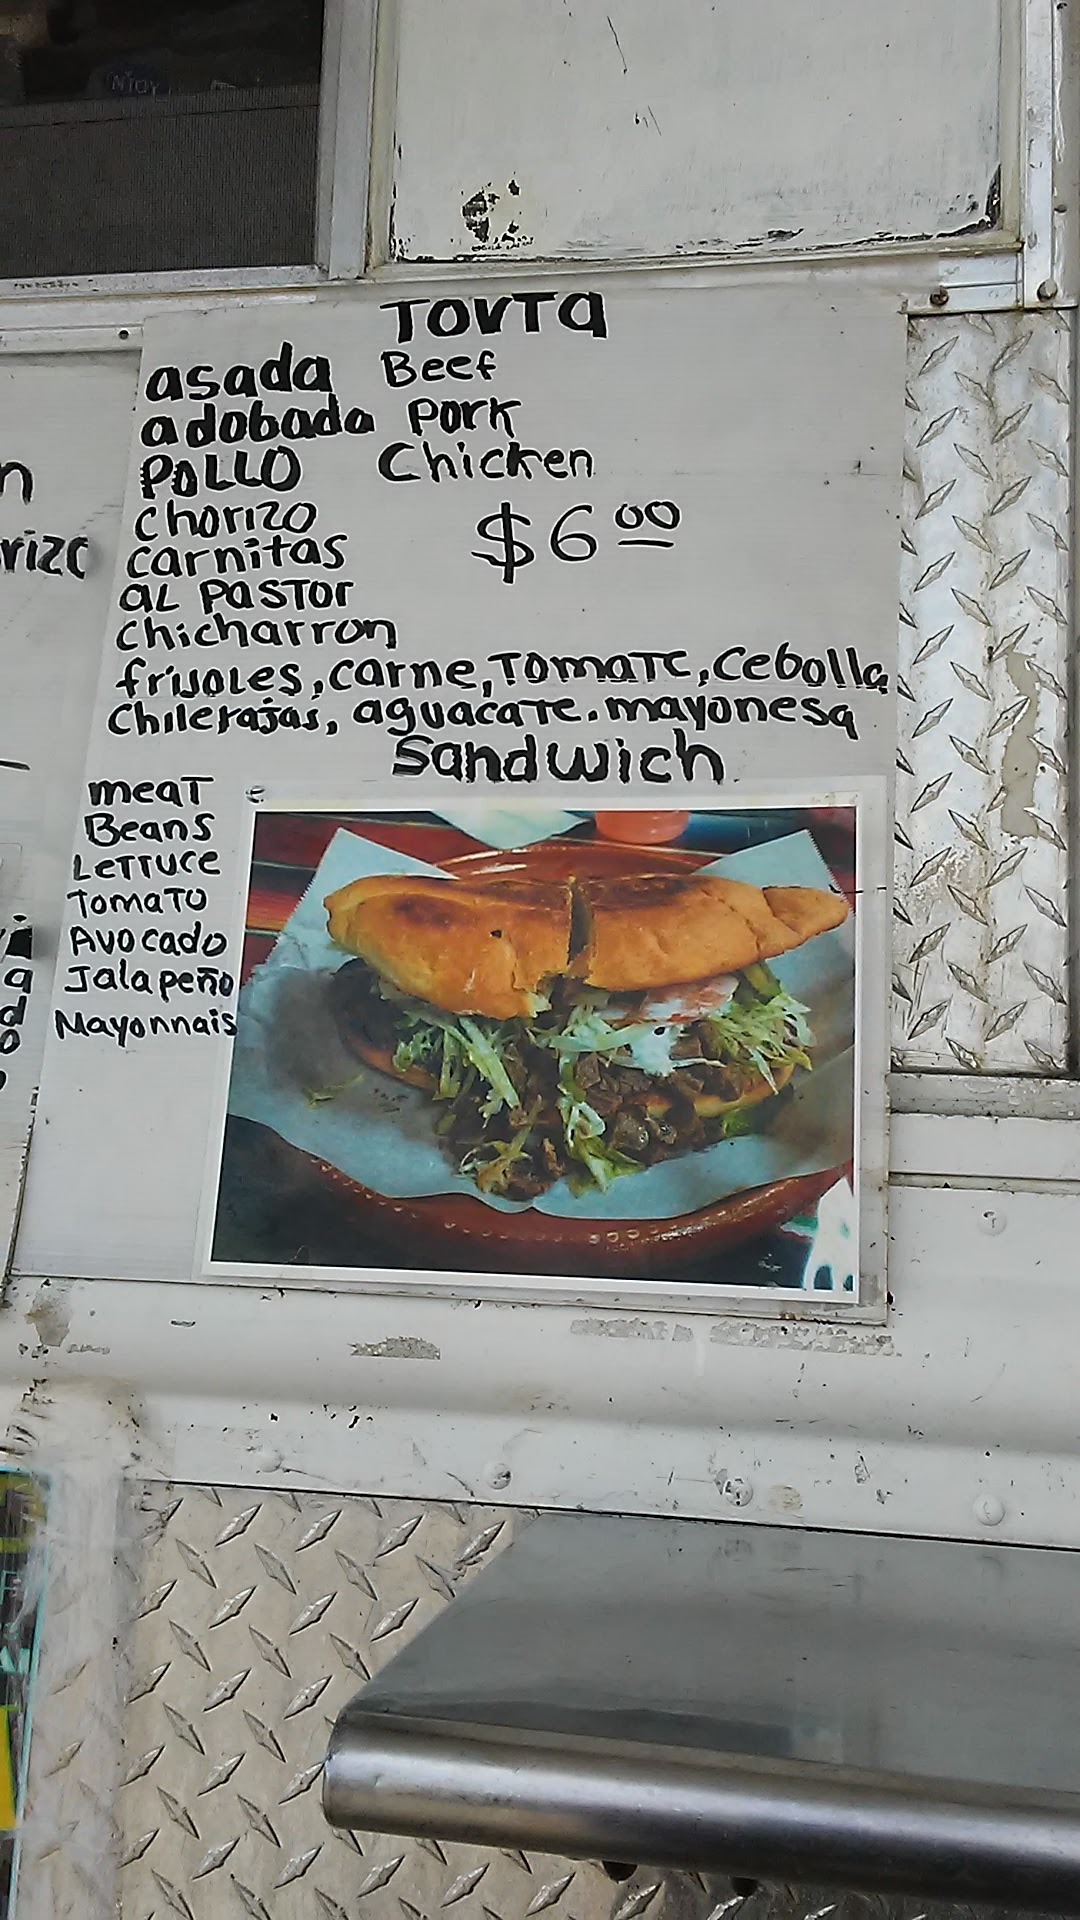 TORTA
asada Beef
adobada Pork
POLLO Chicken
Chorizo
$6.00
carnitas
AL PASTOR
Chicharron
frijoles, carne, Tomate, Cebolla
Chilerajas, aguacate. mayonesa
Sandwich
meat
Beans
Lettuce
Tomato
Avocado
Jalapeño
Mayonnais